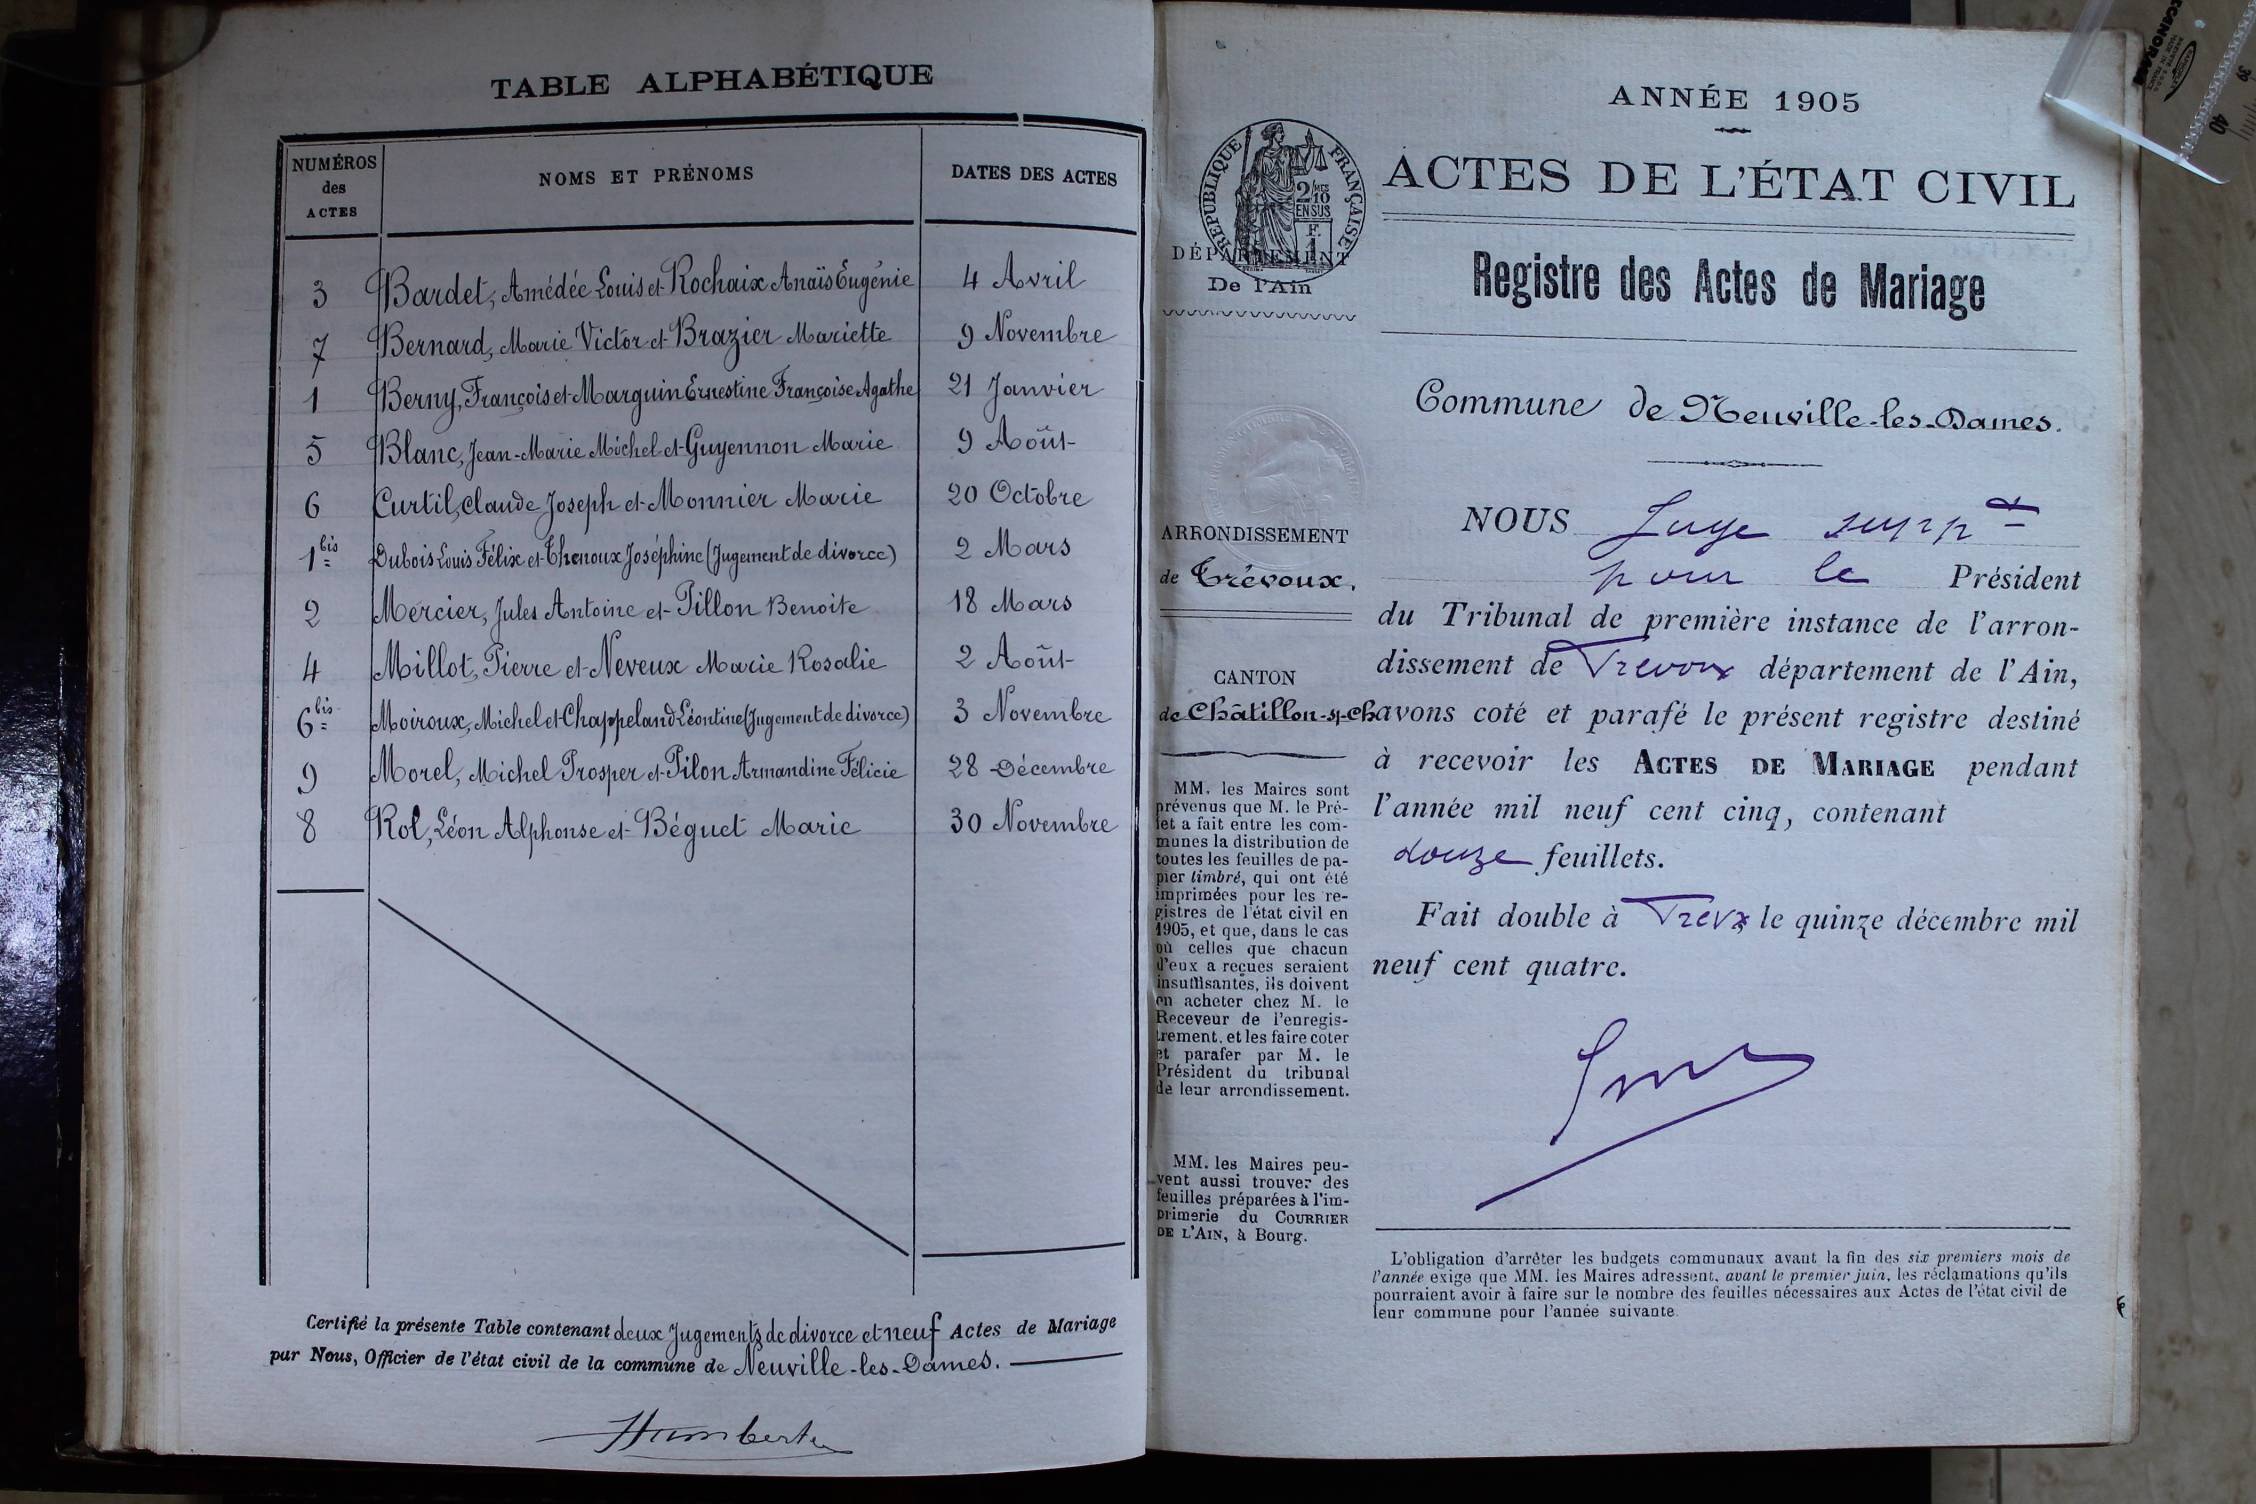 TABLE ALPHABÉTIQUE
NUMÉROS des ACTES NOMS ET PRÉNOMS DATES DES ACTES
3 Bardet, Amédée Louis et Rochaix Anaïs Eugénie 4 Avril
7 Bernard, Marie Victor et Brazier Mariette 9 Novembre
1 Berny, François et Marguin Ernestine Françoise Agathe 21 Janvier
5 Blanc, Jean-Marie Michel et Guyennon Marie 9 Août
6 Curtil, Claude Joseph et Monnier Marie 20 Octobre
1 bis Dubois Louis Félix et Thenoux Joséphine (Jugement de divorce) 2 Mars
2 Mercier, Jules Antoine et Pillon Benoite 18 Mars
4 Millot, Pierre et Neveux Marie Rosalie 2 Août
6 bis Moiroux, Michel et Chappeland Léontine (Jugement de divorce) 3 Novembre
9 Morel, Michel Prosper et Pilon Armandine Félicie 28 Décembre
8 Rol, Léon Alphonse et Béguet Marie 30 Novembre
Certifié la présente Table contenant deux Jugements de divorce et neuf Actes de Mariage
par Nous, Officier de l'état civil de la commune de Neuville-les-Dames.
ANNÉE 1905
ACTES DE L'ÉTAT CIVIL
RÉPUBLIQUE FRANÇAISE
2/10 MES
EN SUS
F.
1
DÉPARTEMENT
De l'Ain
Registre des Actes de Mariage
Commune de Neuville-les-Dames.
ARRONDISSEMENT
de Trévoux.
CANTON
de Châtillon-s/-Ch
MM. les Maires sont
prévenus que M. le Pré-
fet a fait entre les com-
munes la distribution de
toutes les feuilles de pa-
pier timbré, qui ont été
imprimées pour les re-
gistres de l'état civil en
1905, et que, dans le cas
où celles que chacun
d'eux a reçues seraient
insuffisantes, ils doivent
en acheter chez M. le
Receveur de l'enregis-
trement, et les faire coter
et parafer par M. le
Président du tribunal
de leur arrondissement.
MM. les Maires peu-
vent aussi trouver des
feuilles préparées à l'im-
primerie du COURRIER
DE L'AIN, à Bourg.
NOUS Juge suppt
pour le Président
du Tribunal de première instance de l'arron-
dissement de Trevoux département de l'Ain,
avons coté et parafé le présent registre destiné
à recevoir les ACTES DE MARIAGE pendant
l'année mil neuf cent cinq, contenant
douze feuillets.
Fait double à Trevx le quinze décembre mil
neuf cent quatre.
L'obligation d'arrêter les budgets communaux avant la fin des six premiers mois de
l'année exige que MM. les Maires adressent, avant le premier juin, les réclamations qu'ils
pourraient avoir à faire sur le nombre des feuilles nécessaires aux Actes de l'état civil de
leur commune pour l'année suivante.
39
40